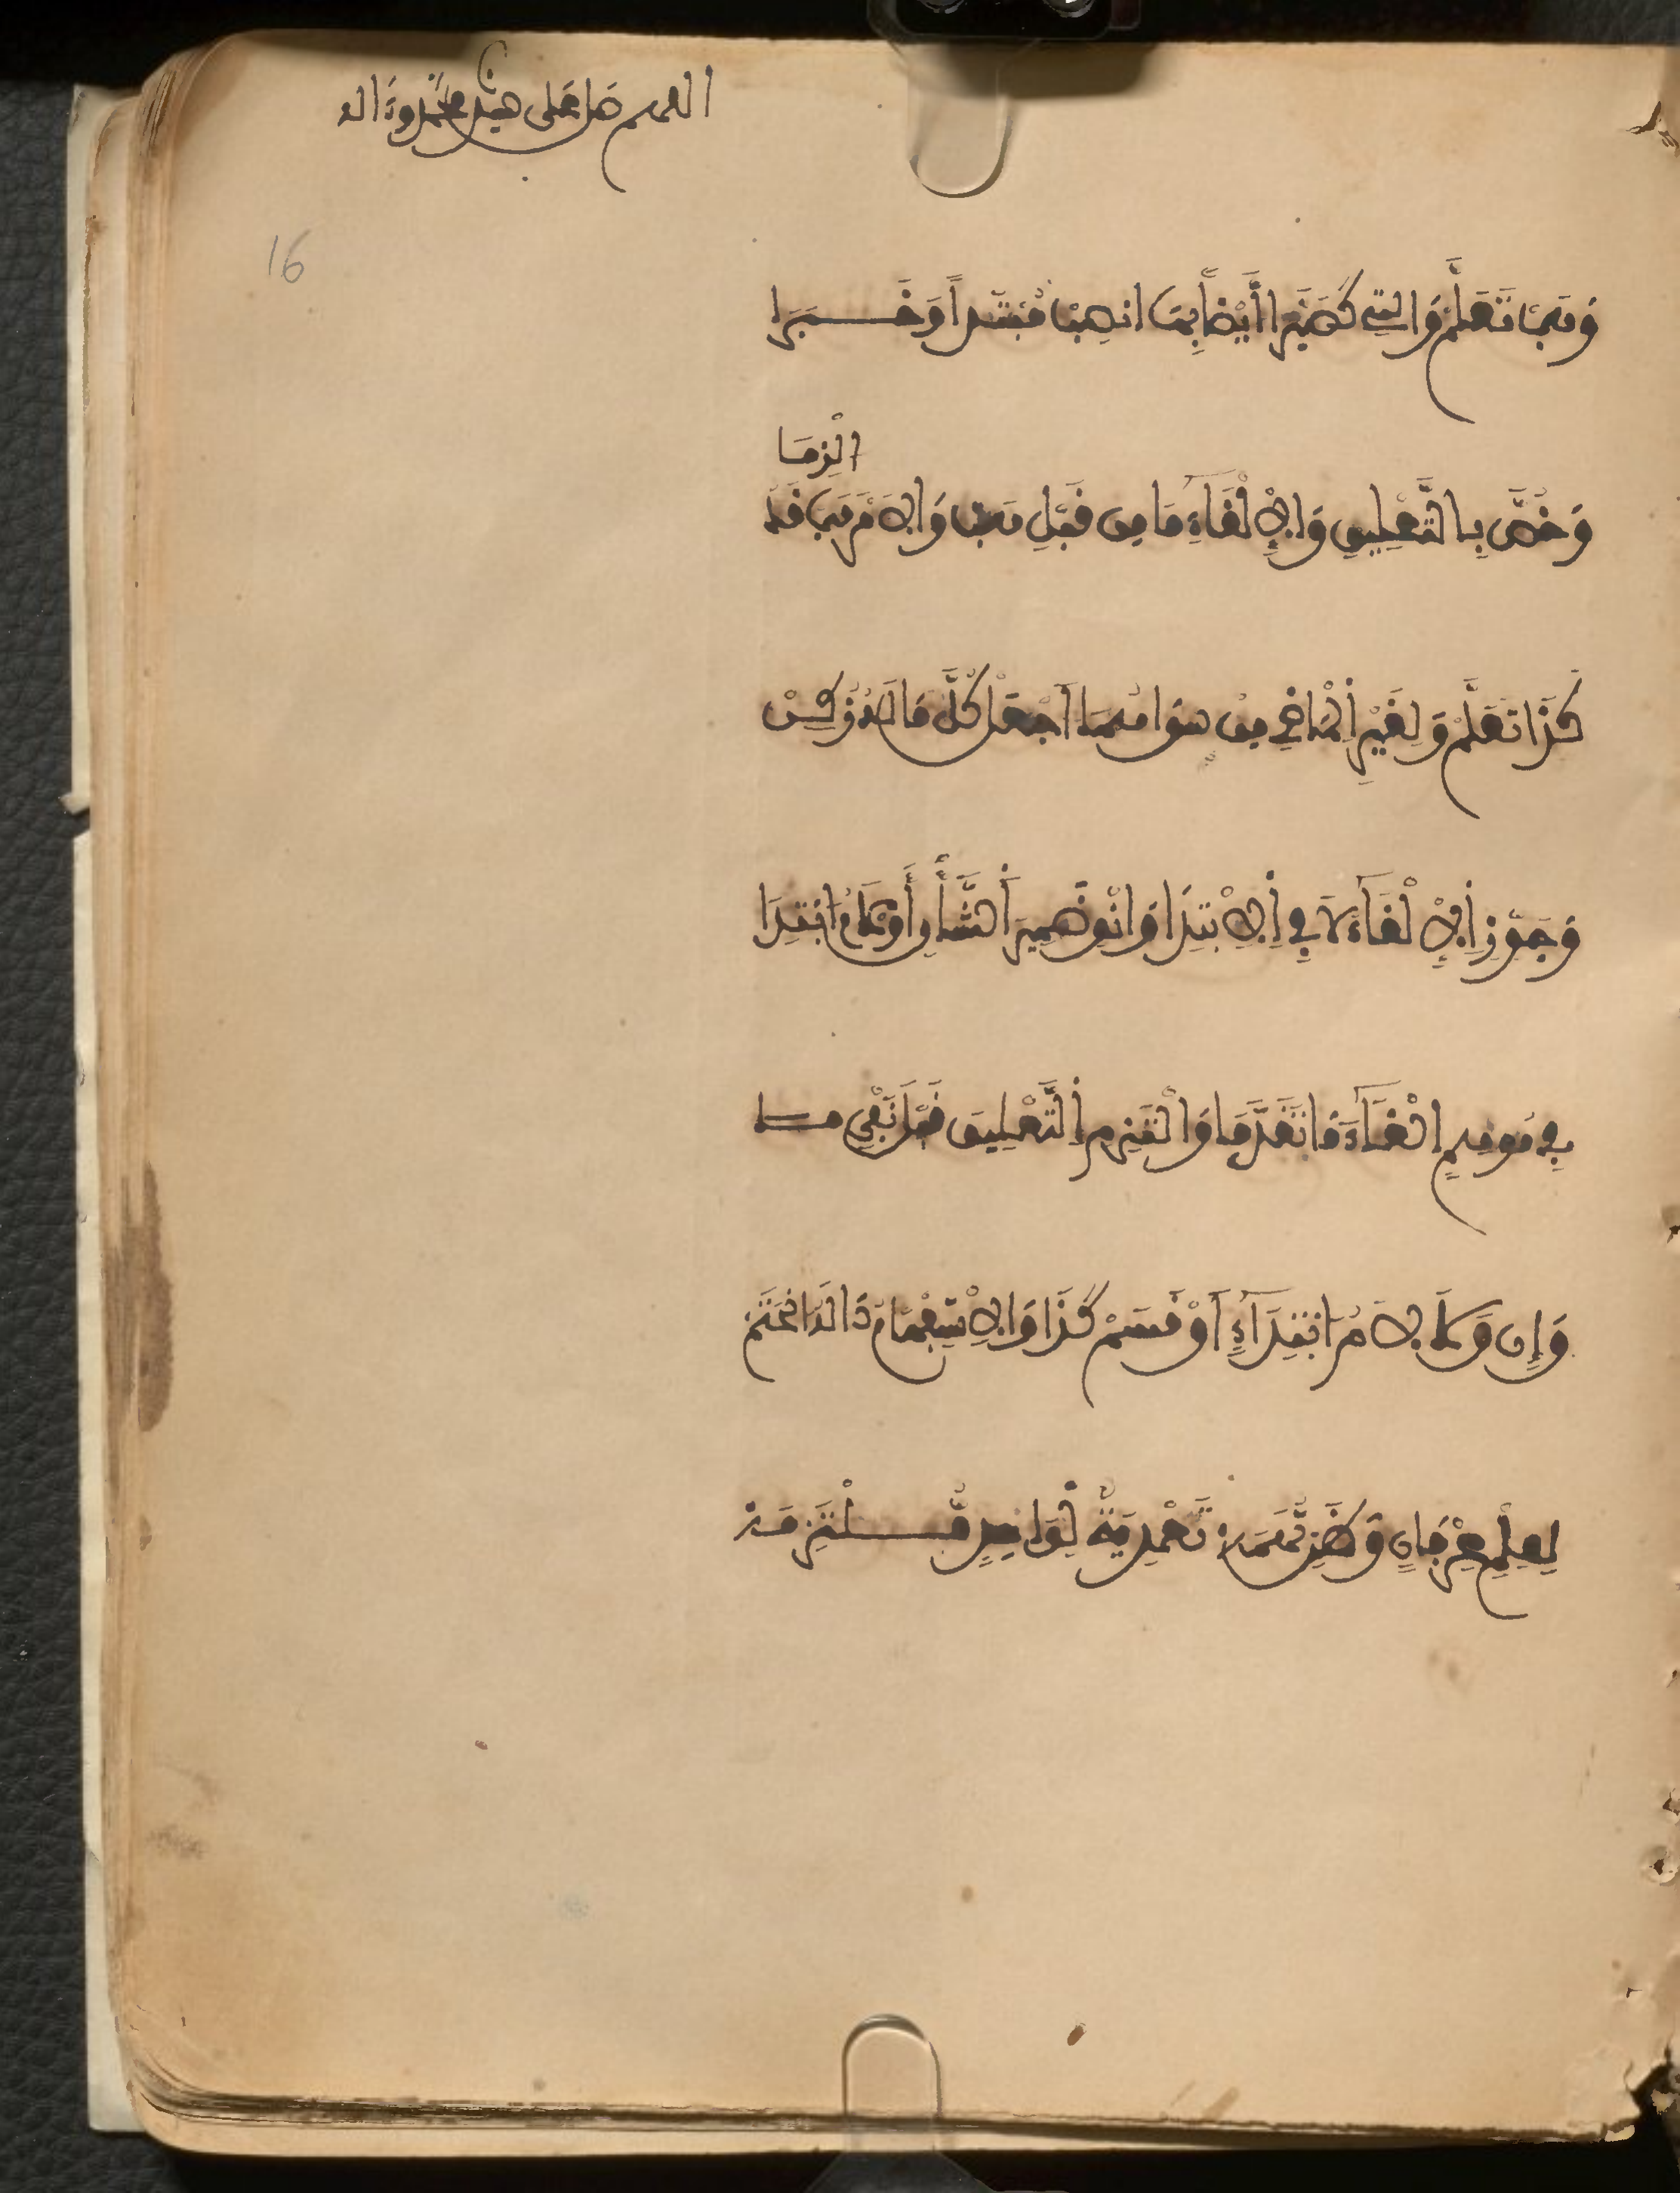 اللهم صل على سيدنا محمد وءاله
16
وَهَبْ تَعَلَّمْ وَالتِي كَصَيَّرَا أَيْضًا بِهَا انْصِبْ مُبْتَدَاً وَخَبَرَا
الْزِمَا
وَخُصَّ بِالتَّعْلِيقِ وَالْإِلْغَاءِ مَا مِن قَبْلِ هَبْ وَالْأَمْرَ هَبْ قَدُ
كَذَا تَعَلَّمْ وَلِغَيْرِ الْمَاضِ مِنْ سِوَاهُمَا اجْعَلْ كُلَّ مَا لَهُ زُكِنْ
وَجَوِّزِ الْإِلْغَاءَ لَا فِي الْإِبْتِدَا وَانْوِ ضَمِيرَ الشَّأْنِ أَوْ لَامَ ابْتِدَا
فِي مُوهِمٍ الْغَاءَ مَا تَقَدَّمَا وَالْتَزِمِ التَّعْلِيقَ قَبْلَ نَفْيِ مَا
وَإِن وَلَا لَامُ ابْتِدَاءٍ أَوْ قَسَمْ كَذَا وَالْإِسْتِفْهَامُ ذَا لَهُ انْحَتَمْ
لِعِلْمِ عِرْفَانٍ وَظَنٍّ تُهَمَهْ تَعْدِيَةٌ لِوَاحِدٍ مُّلْتَزَمَهْ